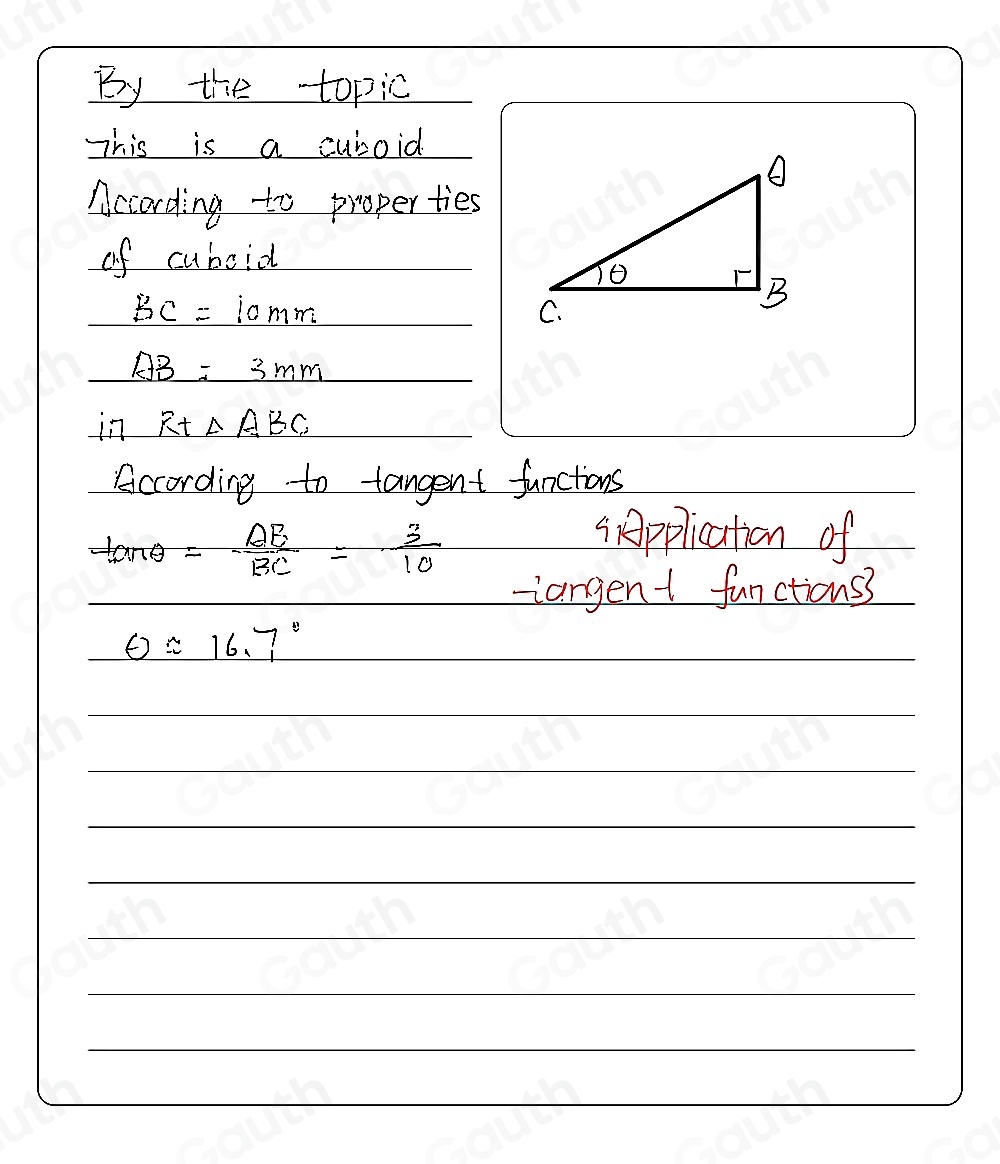 By the topic
This is a cuboid
According to properties
of cuboid
BC = 10mm
AB = 3mm
in Rt △ ABC
According to tangent functions
tanθ = AB/BC = 3/10
Application of
tangent functions
θ ≈ 16.7°
A
θ
B
C.
Gauth